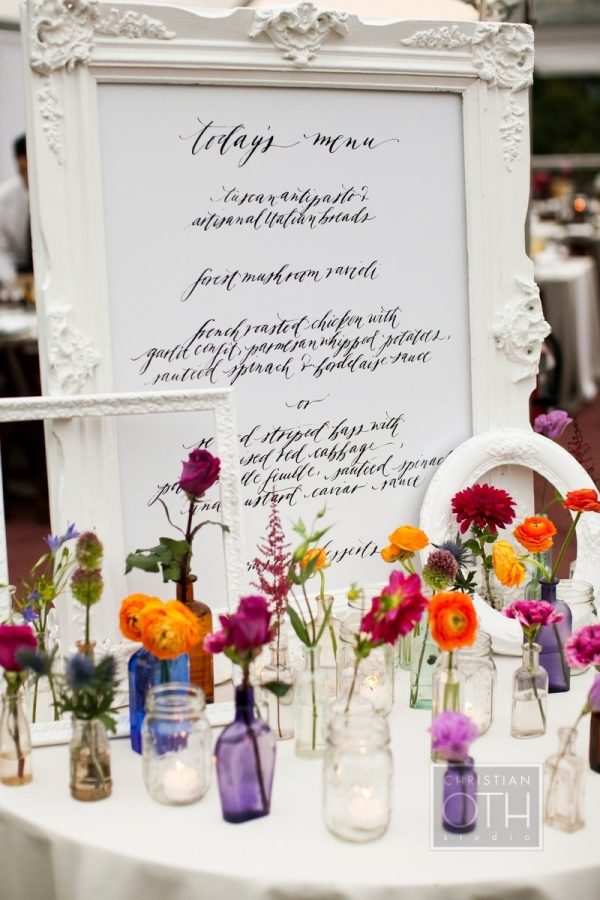 today's menu
tuscan antipasto &
artisanal Italian breads
forest mushroom ravioli
french roasted chicken with
garlic confit, parmesan whipped potatoes,
sautéed spinach & bordelaise sauce
or
striped bass with
red cabbage,
feuille, sautéed spinach
mustard caviar sauce
desserts
CHRISTIAN
OTH
studio